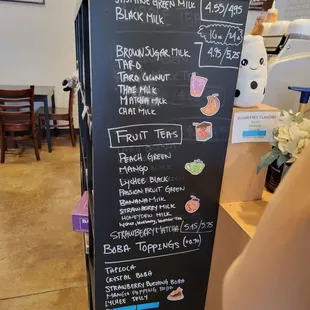 Jasmine Green Milk
Black Milk
4.55/4.95
16oz/24oz
4.95/5.25
Brown Sugar Milk
Taro
Taro Coconut
Thai Milk
Matcha Milk
Chai Milk
Fruit Teas
Peach Green
Mango
Lychee Black
Passion Fruit Green
Banana Milk
Strawberry Milk
Honeydew Milk
Strawberry Matcha
5.45/5.75
Boba Toppings (+0.70)
Tapioca
Crystal Boba
Strawberry Bursting Boba
Mango Popping Boba
Lychee Jelly